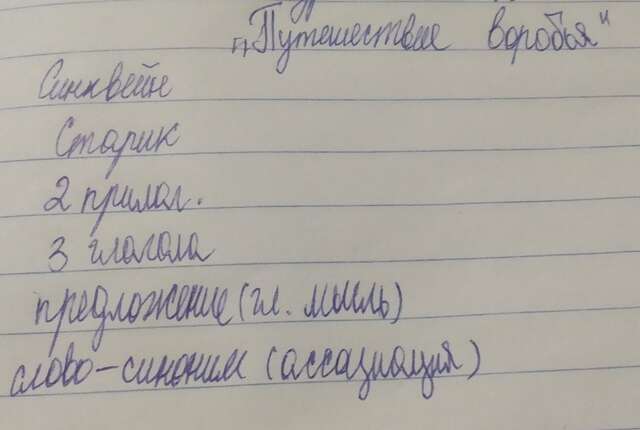 „Путешествие воробья"
Синквейн
Старик
2 прилаг.
3 глагола
предложение (гл. мысль)
слово-синоним (ассоциация)